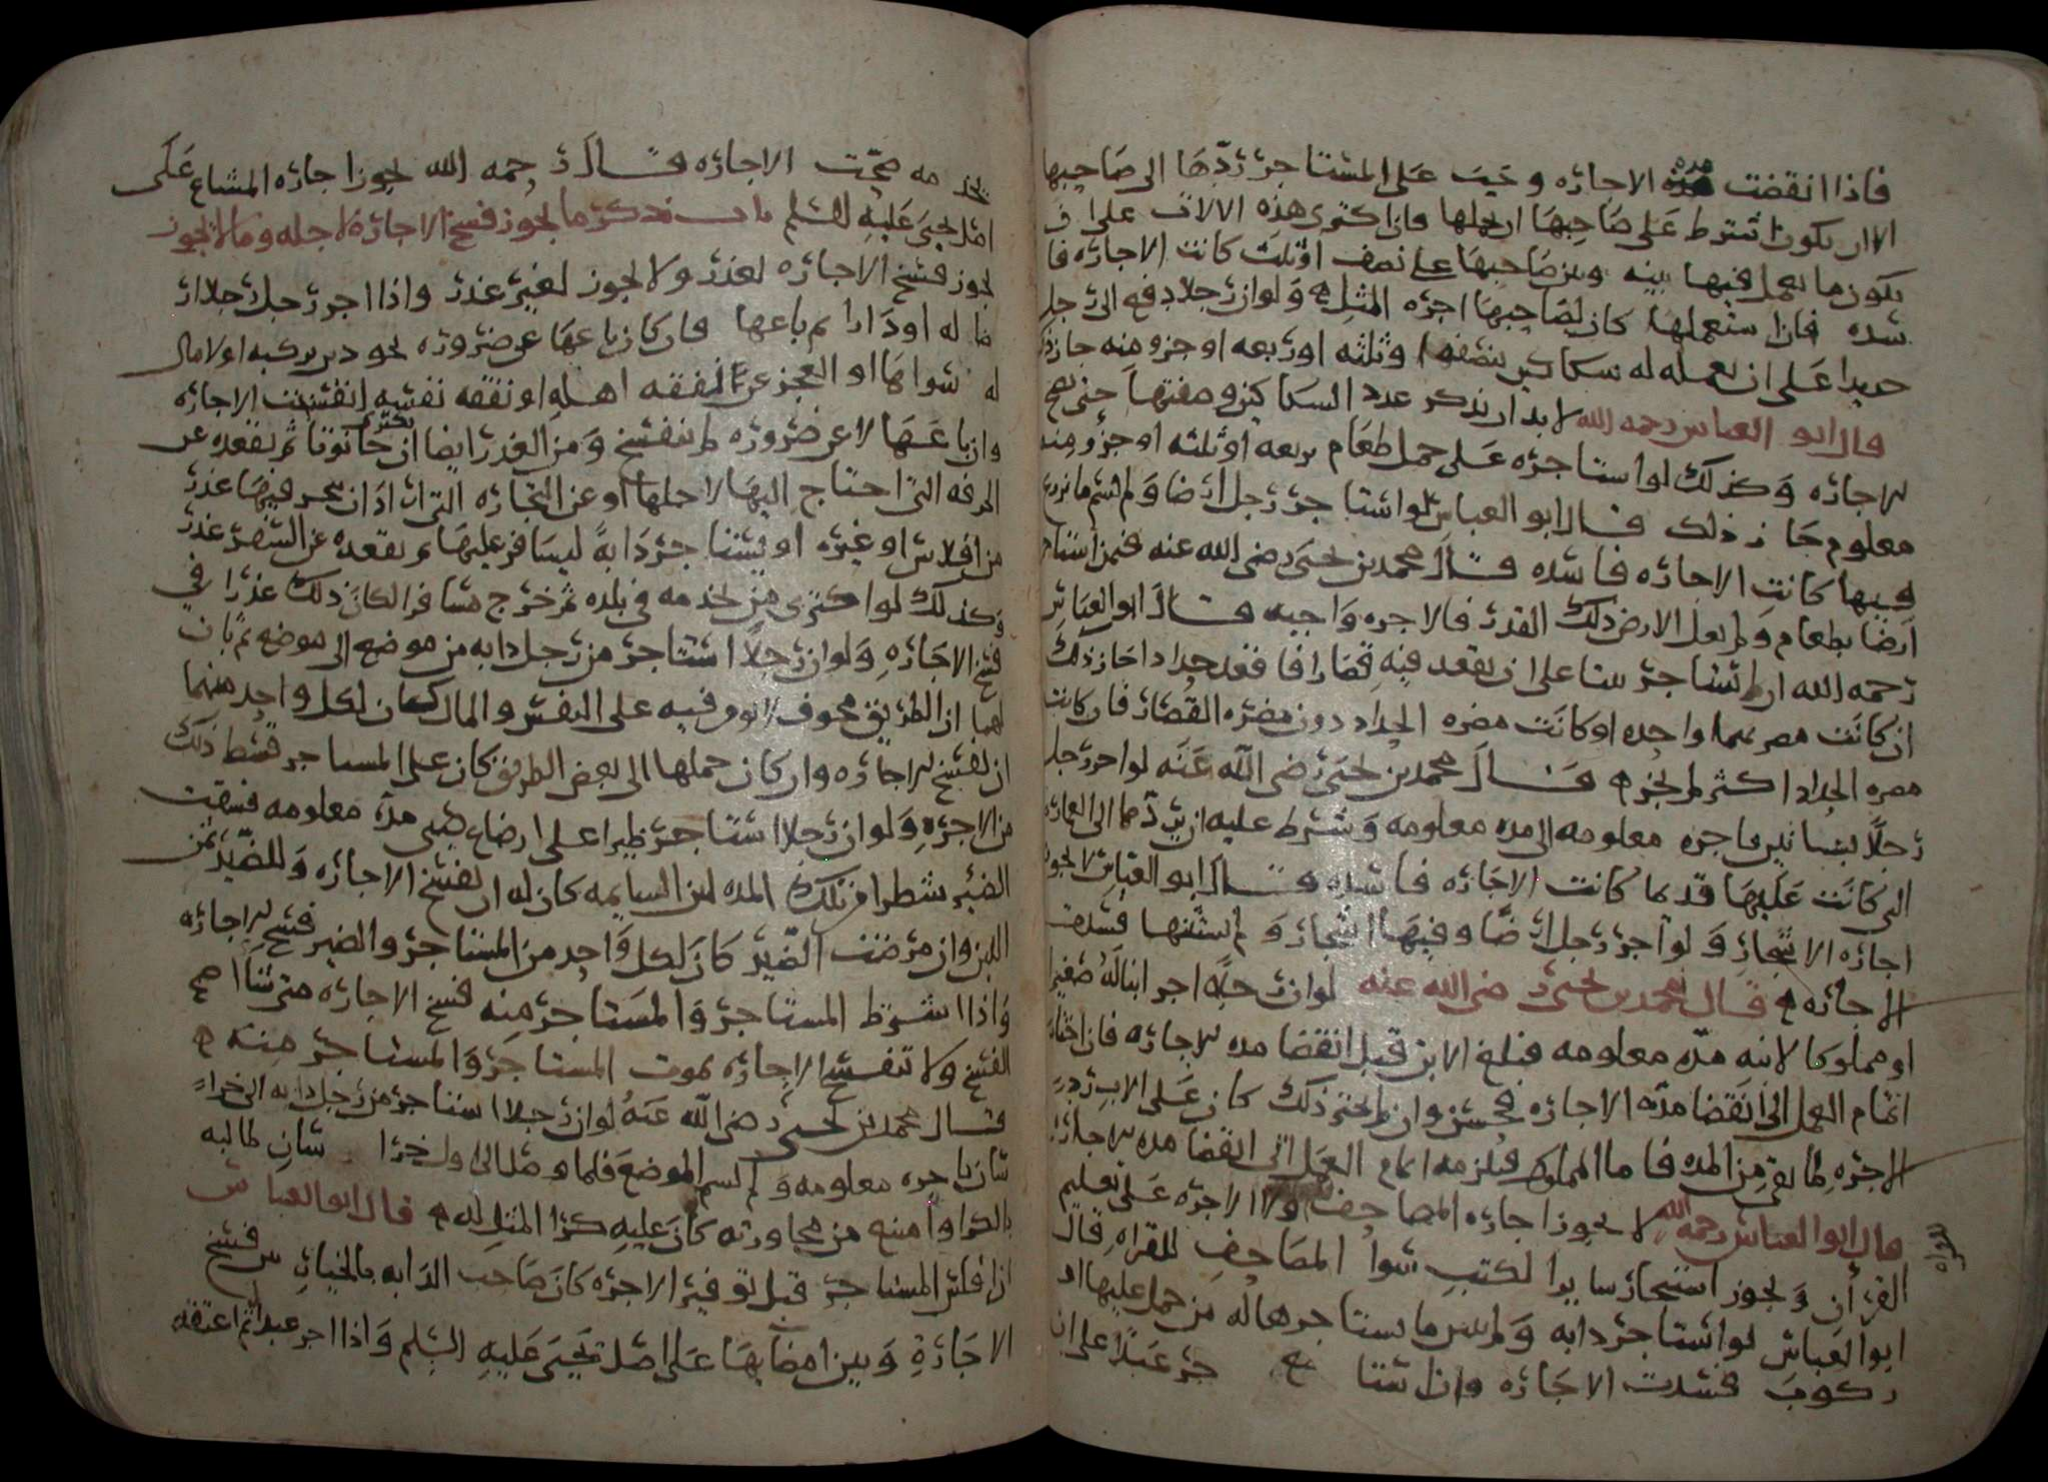 فاذا انقضت مدة الاجازه وجب على المستاجر ردها الى صاحبها
الا ان يكون اشترط على صاحبها ان يحملها فان اكترى هذه الالات على ان
يكون ما يعمل فيها بينه وبين صاحبها على نصف او ثلث كانت الاجاره فا
سده فان استعملها كان لصاحبها اجره المثل ولو ان رجلا دفع الى رجل
حديدا على ان يعمله له سكاكين بنصفه او ثلثه او ربعه او جزو منه جاز ذلك
قال ابو العباس رحمه الله لا بد ان يذكر عدد السكاكين وصفتها حتى يصح
الاجاره وكذلك لو استاجره على حمل طعام بربعه او ثلثه او جزو منه
معلوم جاز ذلك قال ابو العباس لو استاجر رجل ارضا ولم يسم ما يزرع
فيها كانت الاجاره فاسده قال محمد بن يحيى رضي الله عنه فيمن استاجر
ارضا بطعام ولم يعل الارض ذلك القدر فالاجره واجبه قال ابو العباس
رحمه الله ان استاجر بيتا على ان يقعد فيه قصارا فاقعد حدادا جاز ذلك
ان كانت مضرتهما واحده او كانت مضره الحداد دون مضره القصار فان كانت
مضره الحداد اكثر لم يجز قال محمد بن يحيى رضي الله عنه لو اجر رجل
رجلا بساتين باجره معلومه الى مده معلومه وشرط عليه ان يردها الى العماره
التي كانت عليها قديما كانت الاجاره فاسده قال ابو العباس لا يجوز
اجاره الاشجار ولو اجر رجل ارضا وفيها اشجار ولم يستثنها فسدت
الاجاره قال محمد بن يحيى رضي الله عنه لو ان رجلا اجر ابنا له صغيرا
او مملوكا لابنه مده معلومه فبلغ الابن قبل انقضا مده الاجاره فان اختار
اتمام العمل الى انقضا مده الاجاره فحسن وان لم يختر ذلك كان على الاب رد
الاجره لما بقي من المده فاما المملوك فيلزمه اتمام العمل الى انقضا مده الاجاره
قال ابو العباس رحمه الله لا يجوز اجاره المصاحف ولا الاجره على تعليم
القران ويجوز استيجار ساير الكتب سوا المصاحف للقراه قال
للقراه
ابو العباس لو استاجر دابه ولم يبين ما يستاجرها له من حمل عليها او
ركوب فسدت الاجاره وان استا جر عبدا على ان
يخدمه صحت الاجاره قال رحمه الله يجوز اجاره المشاع على
اصل يحيى عليه السلم باب ذكر ما يجوز فسخ الاجاره لاجله وما لا يجوز
يجوز فسخ الاجاره لعذر ولا يجوز لغير عذر واذا اجر رجل رجلا ار
ضا له او دارا ثم باعها فان كان باعها عن ضروره نحو دين يركبه او لا مال
له سواها او العجز عن نفقه اهله او نفقه نفسه انفسخت الاجاره
وان باعها لا عن ضروره لم تنفسخ ومن العذر ايضا ان يكتري حانوتا ثم يقعده عن
الحرفه التي احتاج اليها لاجلها او عن التجاره التي اراد ان يتجر فيها عذر
من افلاس او غيره او يستاجر دابة ليسافر عليها ثم يقعده عن السفر عذر
وكذلك لو اكترى من يخدمه في بلده ثم خرج مسافرا لكان ذلك عذرا في
فسخ الاجاره ولو ان رجلا استاجر من رجل دابه من موضع الى موضع ثم بان
لهما ان الطريق مخوف لا يؤمن فيه على النفس والمال كان لكل واحد منهما
ان يفسخ الاجاره وان كان حملها الى بعض الطريق كان على المستاجر قسط ذلك
من الاجره ولو ان رجلا استاجر ظيرا على ارضاع صبي مده معلومه فسقت
الصبي شطرا من تلك المده لبن السايمه كان له ان يفسخ الاجاره وللظير ثمن
اللبن وان مرضت الظير كان لكل واحد من المستاجر والظير فسخ الاجاره
واذا اشترط المستاجر والمستاجر منه فسخ الاجاره متى شاا صح
الفسخ ولا تنفسخ الاجاره بموت المستاجر والمستاجر منه
قال محمد بن يحيى رضي الله عنه لو ان رجلا استاجر من رجل دابه الى خرا
سان باجره معلومه ولم يسم الموضع فلما وصل الى اول خرا سان طالبه
بالكرا وامتنع من مجاوزته كان عليه كرا المثل له قال ابو العباس
اذا فلس المستاجر قبل توفير الاجره كان صاحب الدابه بالخيار بين فسخ
الاجارة وبين امضايها على اصل يحيى عليه السلم واذا اجر عبدا ثم اعتقه